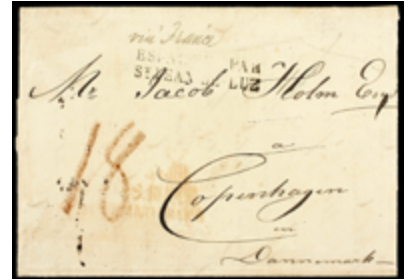 via France
ESPA
ST JEAN PAR LUZ
Mr. Jacob Holm Esq
18
a
Copenhagen
en
Dannemark